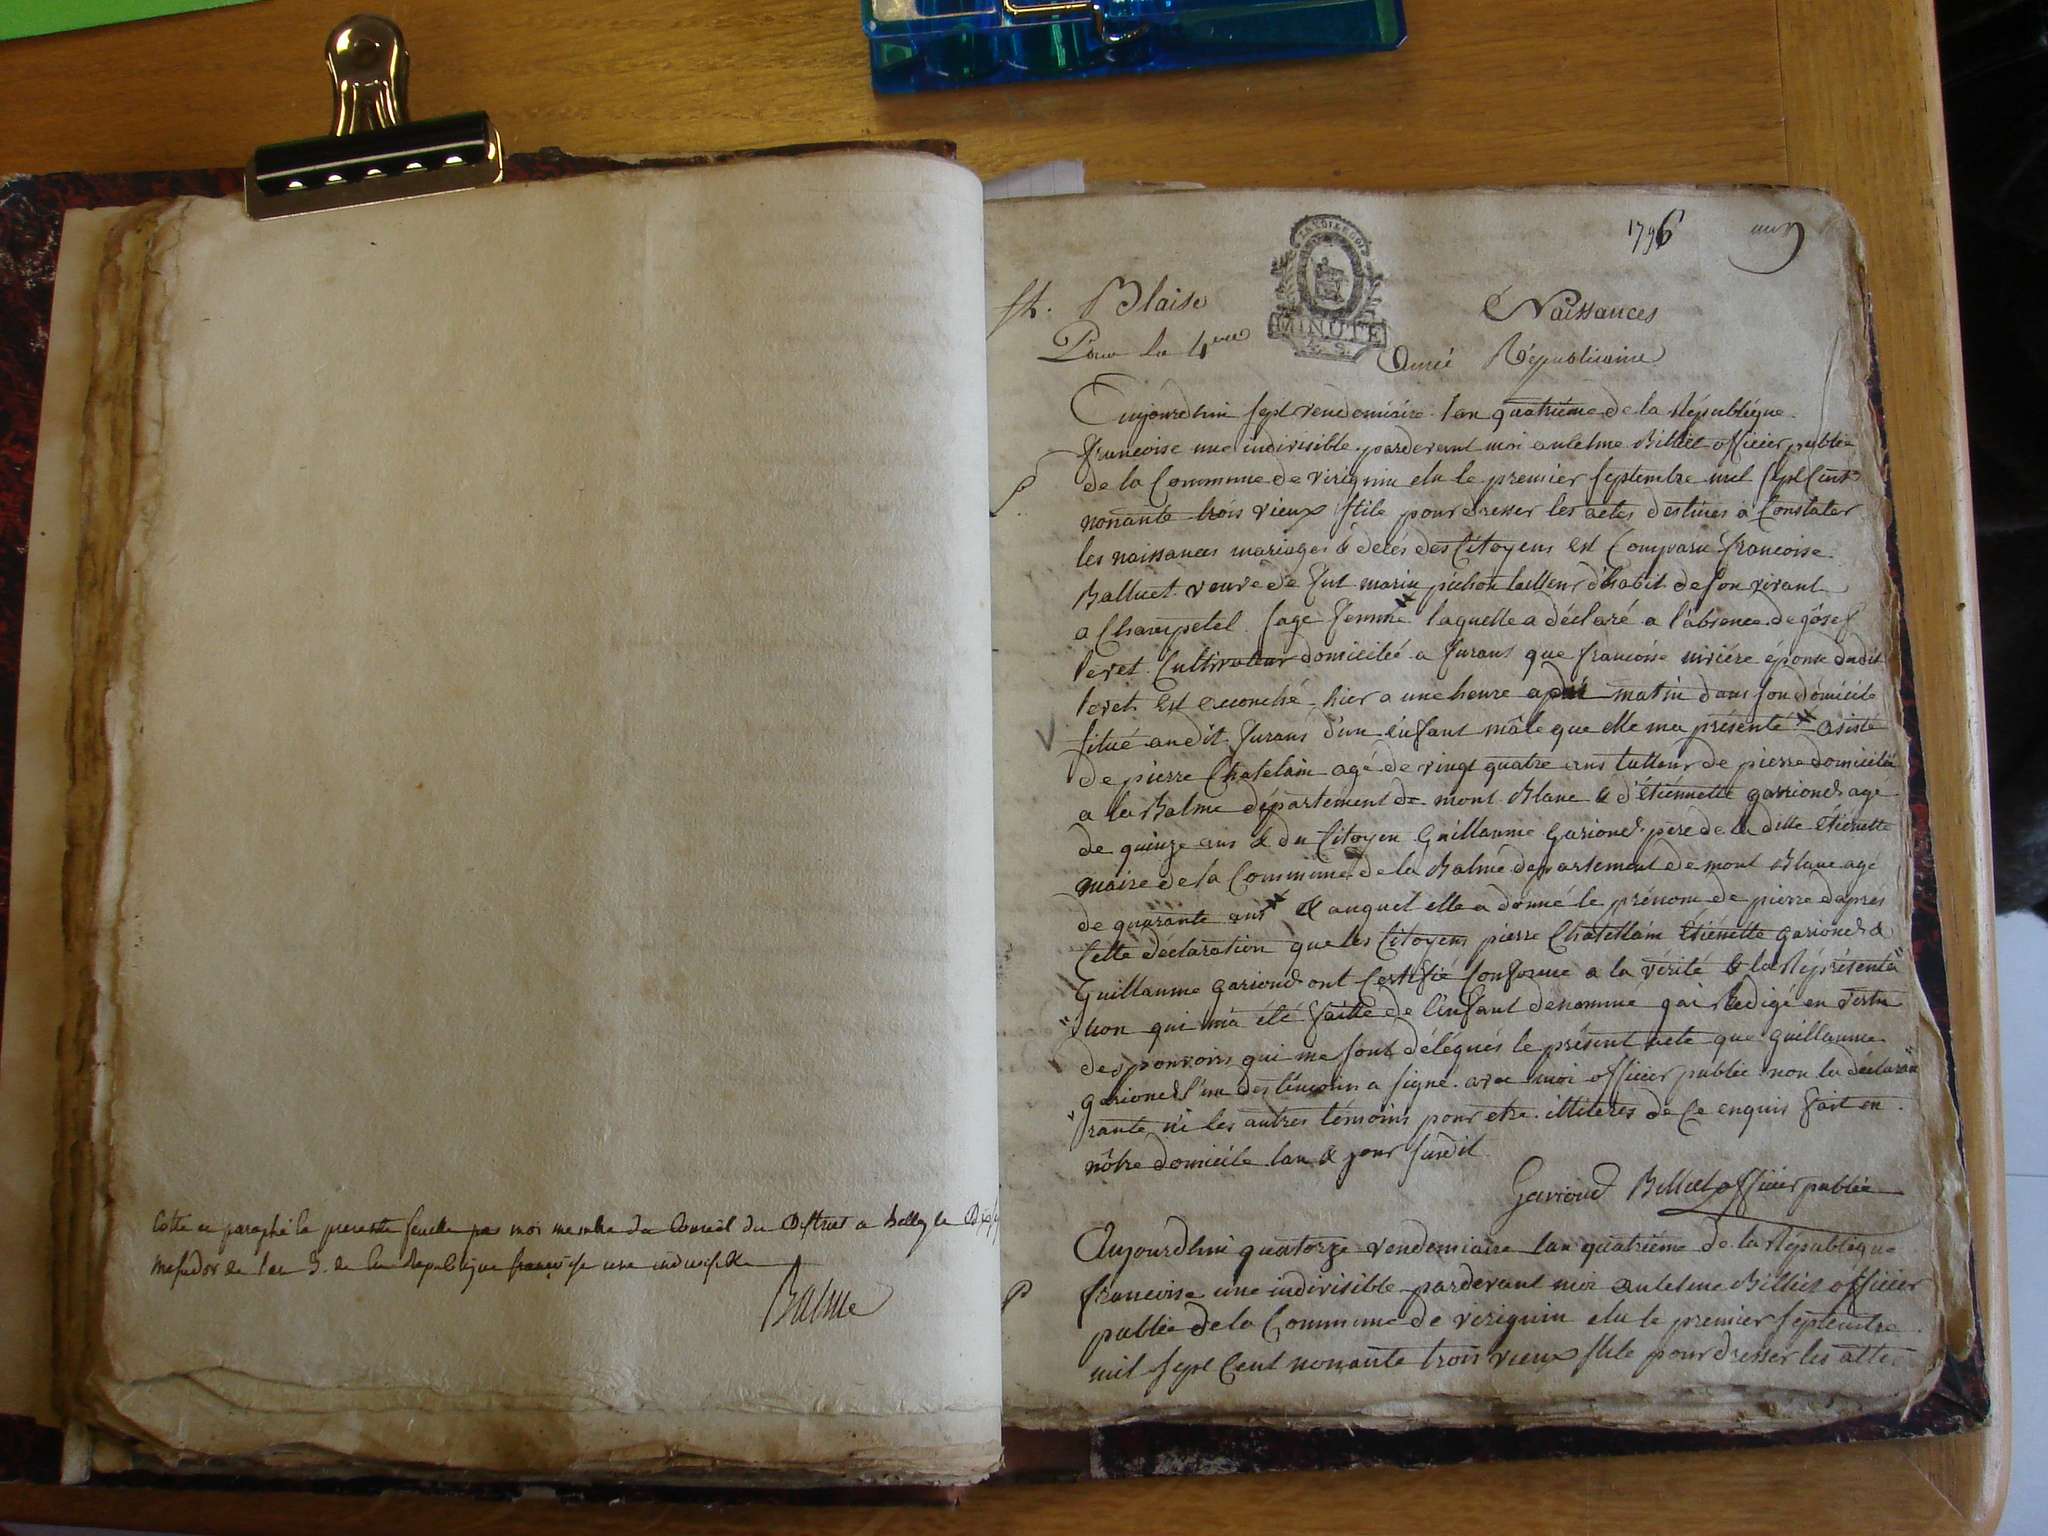 Cotté et paraphé la presente feuille par moi membre du Conseil du District a Belley le
messidor de l'an 3. de la Republique françoise une indivisible
Balme
1796
St. Blaise Naissances
MINUTE
Pour la 4eme Année Républicaine
Aujourdhui sept vendemiaire lan quatrième de la République
francoise une indivisible pardevant moi antelme Billiet officier public
de la Commune de virignin elu le premier septembre mil sept Cent
nonante trois vieux stile pour dresser les actes destinés a Constater
les naissances mariages & décés des Citoyens est Comparu francoise
Balluet veuve de fut marin pichon tailleur d'habit de son vivant
a Champetel sage femme laquelle a déclaré a l'absence de gosef
Cultivateur domicilié a furans que francoise épouse dudit
est accouché hier a une heure matin dans son domicile
situé audit furans d'un enfant mâle que elle ma présenté asisté
de pierre Chatelain agé de vingt quatre ans talleur de pierre domicilié
a la Balme département de mont Blanc & d'étiennette gariond agé
de quinze ans & du Citoyen Guillaume Gariond pere de la ditte étienette
maire de la Commune de la Balme departement de mont Blanc agé
de quarante ans & auquel elle a donné le prénom de pierre daprés
Cette déclaration que les Citoyens pierre Chatellain étiénette gariond &
Guillaume gariond ont Certifié Conforme a la vérité & la Représenta
tion qui ma été faitte de l'enfant dénommé gai Redigé en vertu
des pouvoirs qui me sont délégués le présent acte que guillaume
gariond l'un des témoins a signé avec moi officier public non la déclara
rante ni les autres témoins pour etre illiteres de Ce enquis fait en
nôtre domicile lan & jour susdit
Gariond Billiet officier public
Aujourdhui quatorze vendemiaire lan quatriéme de la République
francoise une indivisible pardevant moi antelme Billiet officier
public de la Commune de virignin elu le premier septembre
mil sept Cent nonante trois vieux stile pour dresser les actes